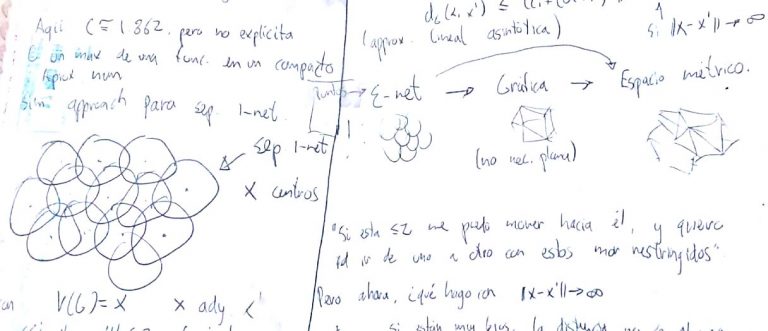 Aquí C ≈ 1.862, pero no explícita
Es un max de una func. en un compacto
Aprox num
approach para sep. 1-net.
sep 1-net
X centros
V(G)=X X ady. X'
(approx. lineal asintótica)
si ||x-x'|| → ∞
puntos → ε-net → Gráfica → Espacio métrico.
(no nec. plana)
"Si esta ≤2 me puedo mover hacia él, y quiero
ir de uno a otro con estos mov restringidos"
Pero ahora, ¿qué hago con ||x-x'|| → ∞
si están muy lejos, la distancia